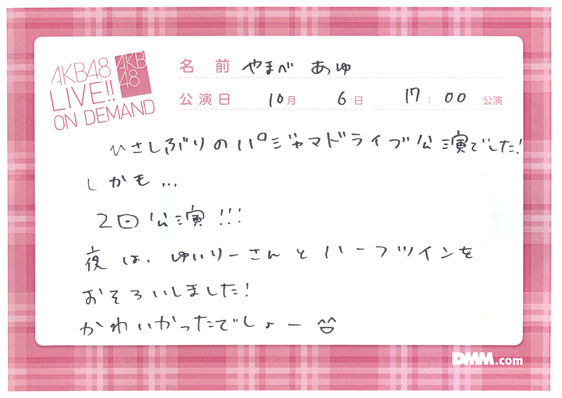 AKB48
LIVE!!
ON DEMAND
AKB
48
名 前 やまべ あゆ
公演日 10月 6日 17:00 公演
ひさしぶりのパジャマドライブ公演でした!
しかも...
2回公演!!!
夜は、ゆいりーさんとハーフツインを
おそろいしました!
かわいかったでしょー
DMM.com